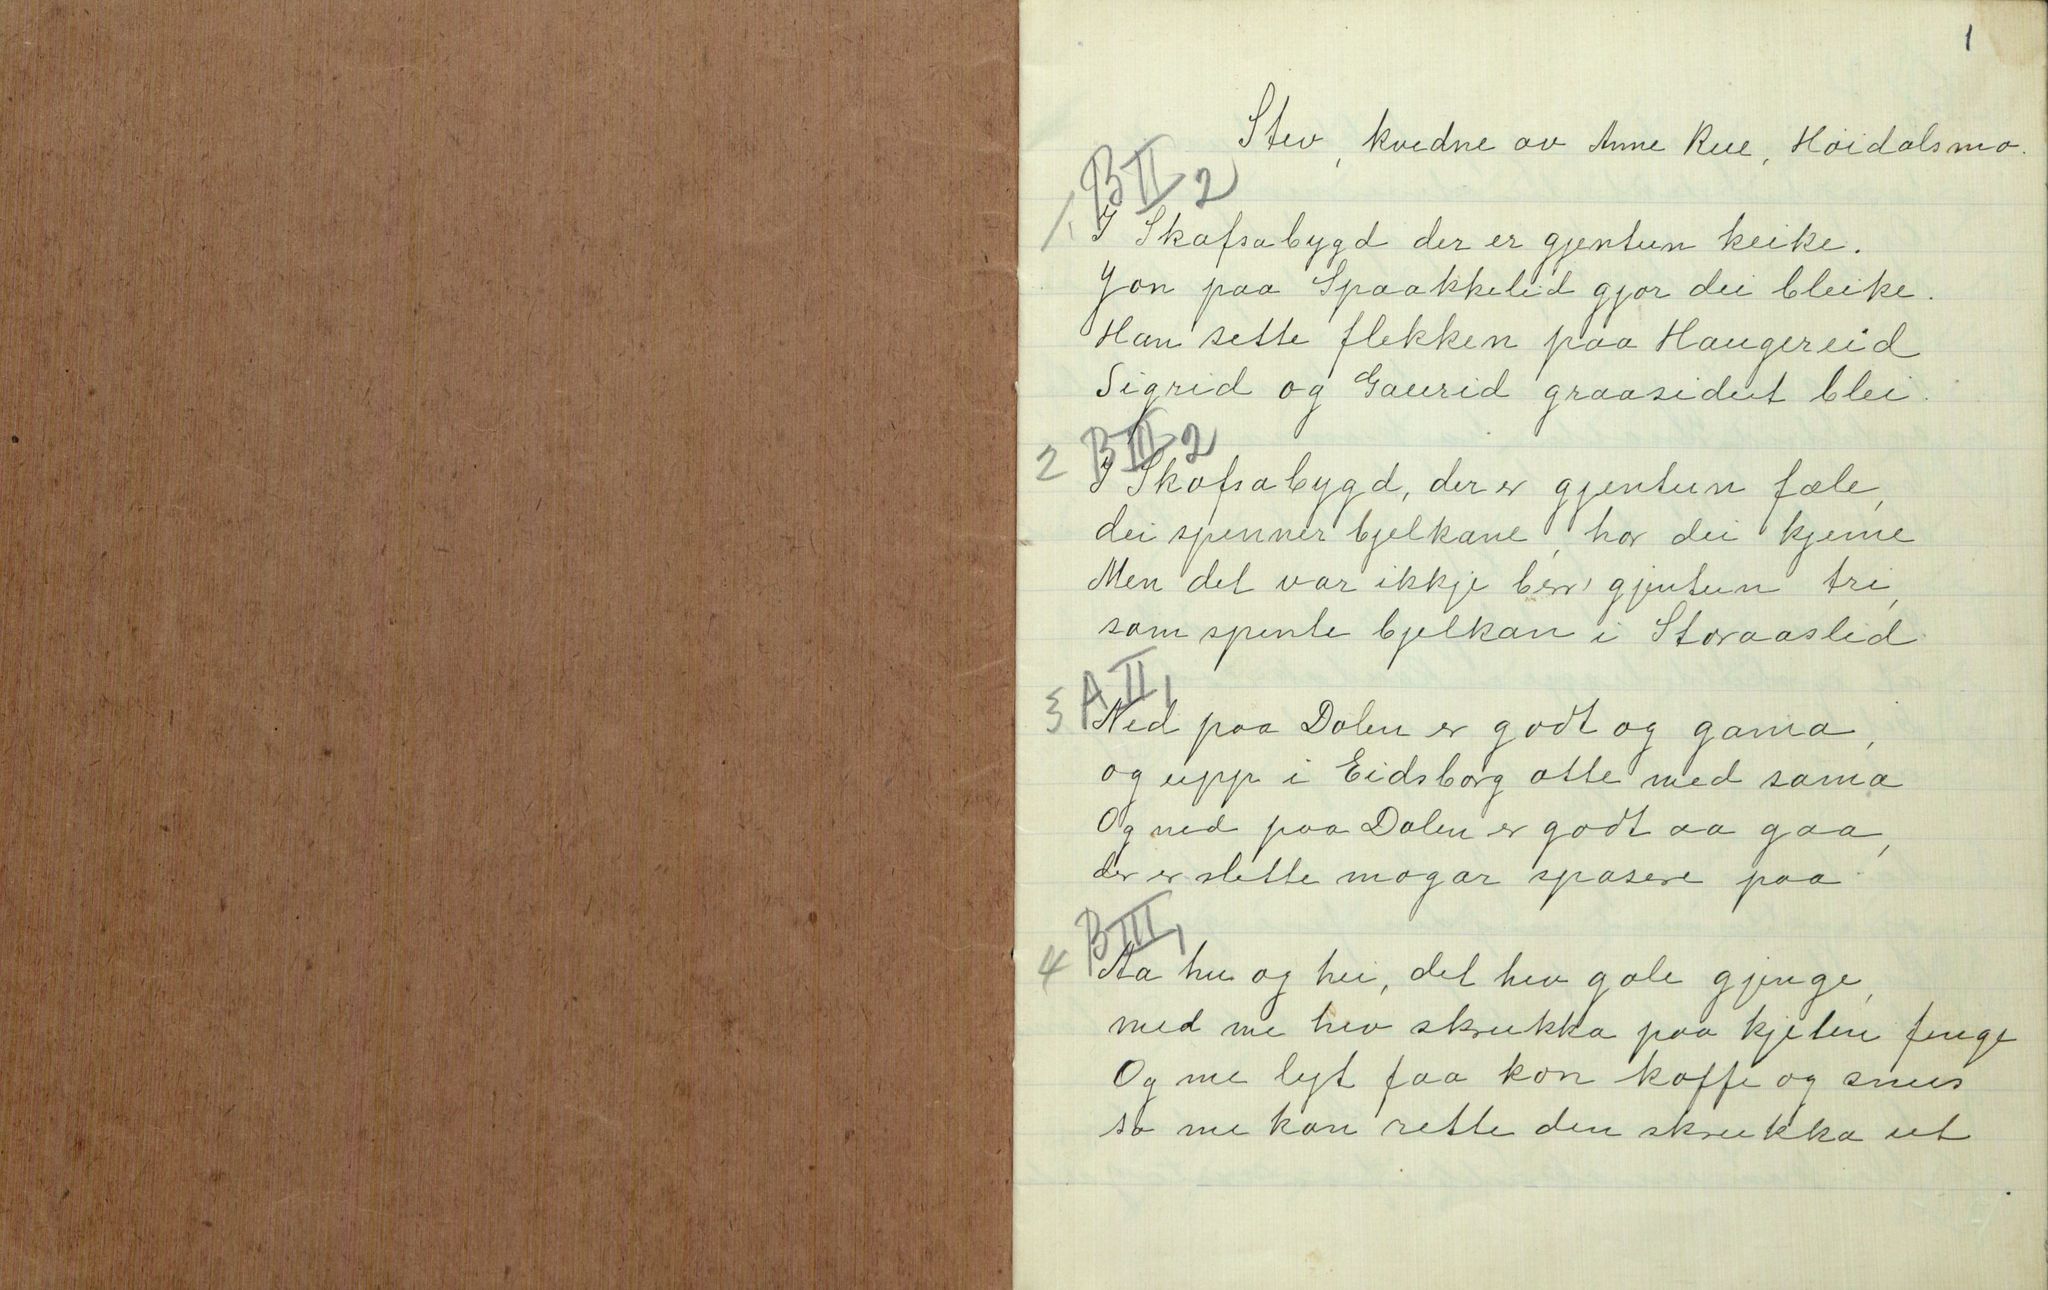 1
Stev, kvedne av Anne Rue, Høidalsmo.
BII 2
1. I Skafsabygd der er gjentun keike.
Jon paa Spaakkelid gjor dei bleike.
Han sette flekken paa Haugereid
Sigrid og Gaurid graasideit blei.
BII 2
2 I Skafsabygd, der er gjentun fæle,
dei spenner bjelkane, har dei kjeme
Men det var ikkje berr' gjentun tri,
som spente bjelkan i Storaaslid
AII, 1
3 Ned paa Dalen er godt og gama,
og upp i Eidsborg atte med sama
Og ned paa Dalen er godt aa gaa,
der er slette mogar spasere paa
BIII, 1
4 Aa hu og hei, det hev gale gjenge,
med me hev skrukka paa kjelen fenge
Og me lyt faa kon kaffe og snus
so me kan rette den skrukka ut